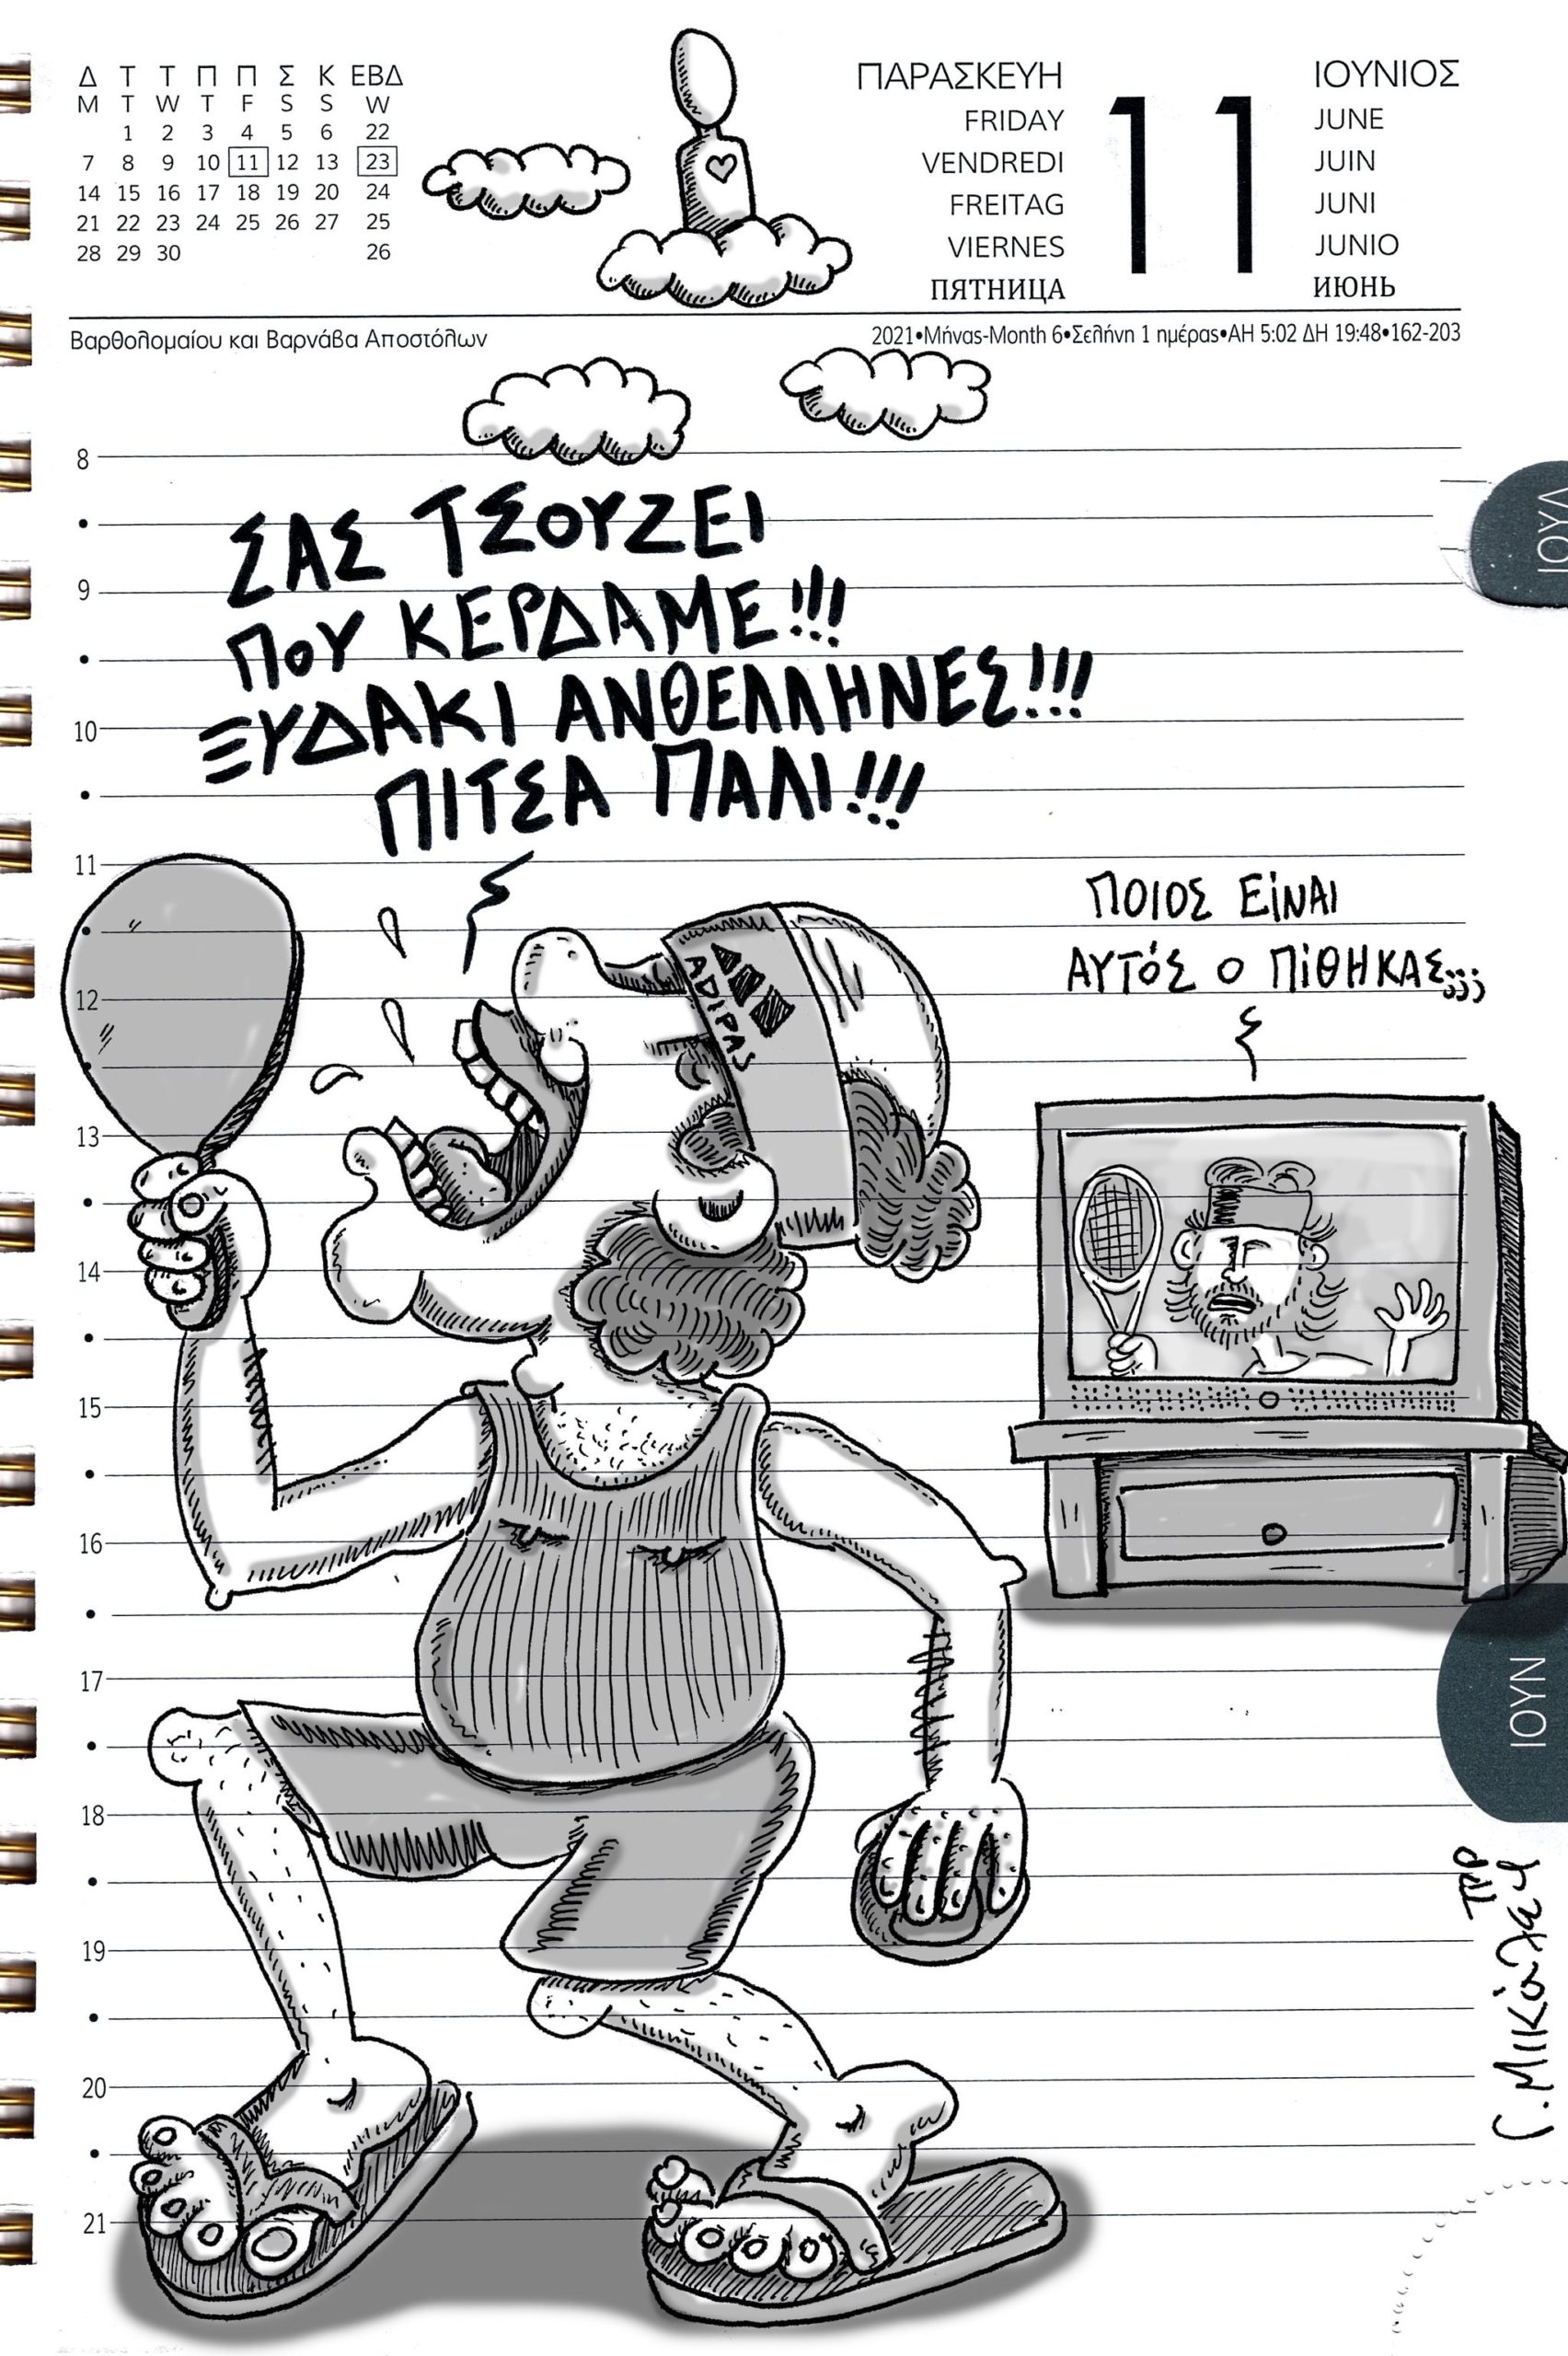 Δ Τ Τ Π Π Σ Κ ΕΒΔ
M T W T F S S W
1 2 3 4 5 6 22
7 8 9 10 11 12 13 23
14 15 16 17 18 19 20 24
21 22 23 24 25 26 27 25
28 29 30 26
ΠΑΡΑΣΚΕΥΗ
FRIDAY
VENDREDI
FREITAG
VIERNES
ПЯТНИЦА
11
ΙΟΥΝΙΟΣ
JUNE
JUIN
JUNI
JUNIO
ИЮНЬ
Βαρθολομαίου και Βαρνάβα Αποστόλων
2021•Μήνας-Month 6•Σελήνη 1 ημέρας•ΑΗ 5:02 ΔΗ 19:48•162-203
8
ΣΑΣ ΤΣΟΥΖΕΙ
9
ΠΟΥ ΚΕΡΔΑΜΕ!!!
ΞΥΔΑΚΙ ΑΝΘΕΛΛΗΝΕΣ!!!
10
ΠΙΤΣΑ ΠΑΛΙ!!!
ΙΟΥΛ
11
ΠΟΙΟΣ ΕΙΝΑΙ
ΑΥΤΌΣ Ο ΠΙΘΗΚΑΣ;;;
12
ADIPAS
13
14
15
16
17
ΙΟΥΝ
18
19
20
21
Γ. Μικάλεφ